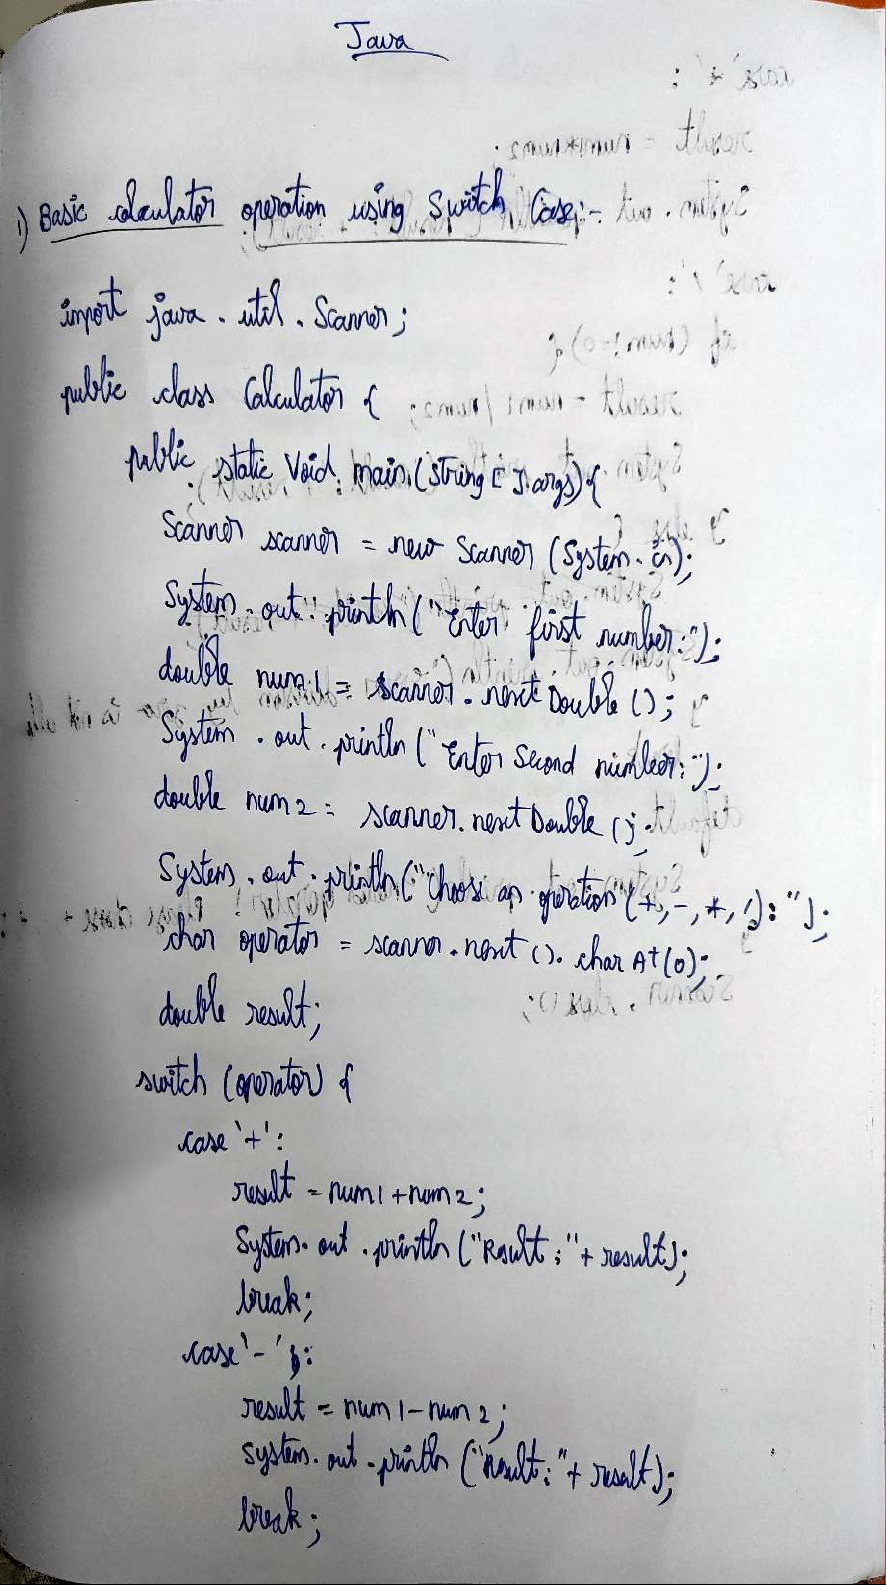 Java
1) Basic calculator operation using Switch Case:-
import java.util.Scanner;
public class Calculator {
public static Void main(String[] args){
Scanner scanner = new Scanner (System.in);
System.out.println("Enter first number:");
double num1 = scanner.nextDouble();
System.out.println("Enter Second number:");
double num2 = scanner.nextDouble();
System.out.println("Choose an operation (+,-,*,/): ");
char operator = scanner.next().charAt(0);
double result;
switch (operator) {
case '+':
result = num1+num2;
System.out.println("Result:"+ result);
break;
case '-':
result = num1-num2;
System.out.println("Result:"+ result);
break;